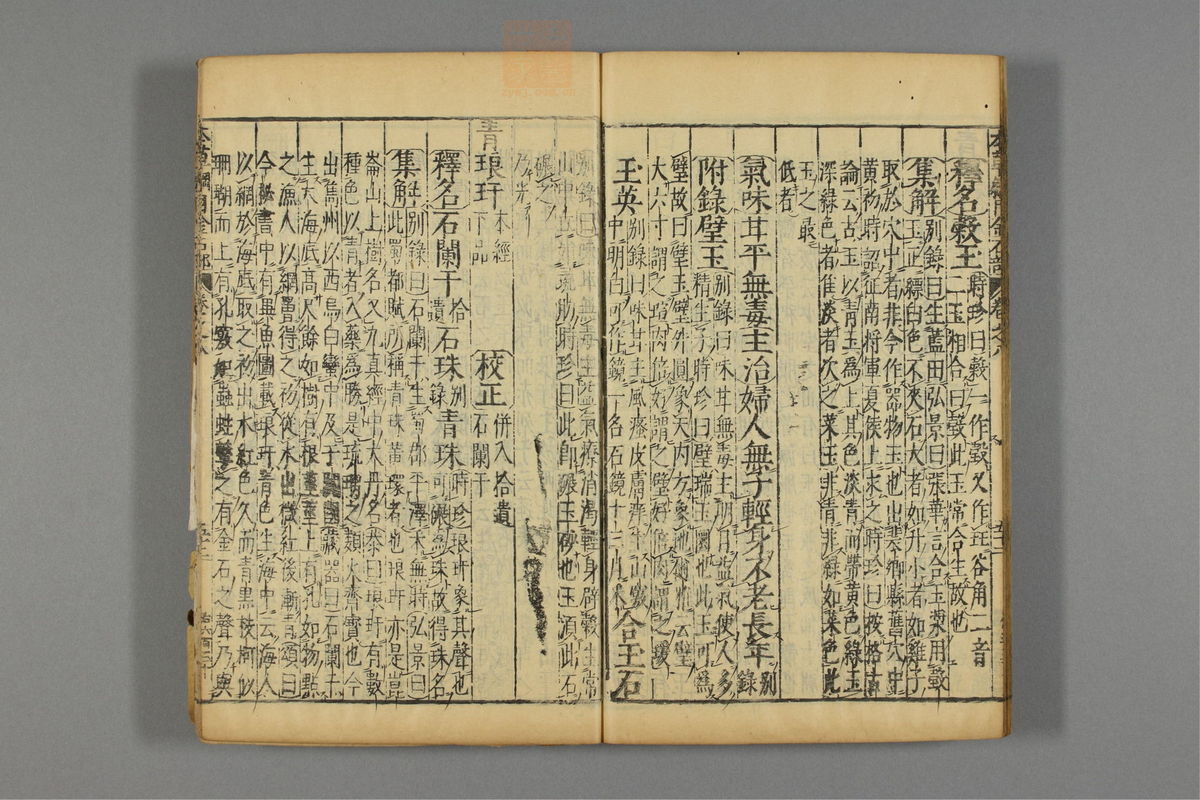 釋名瑴玉時珍曰瑴一作㲄又作玨谷角二音
二玉相合曰瑴此玉常合生故也
集解別錄曰生藍田弘景曰張華言合玉漿用瑴
玉正縹白色不夾石大者如升小者如雞子
取於穴中者非今作器物玉也出襄鄉縣舊穴中
黃初時詔征南將軍夏侯上求之時珍曰按格古
論云古玉以青玉爲上其色淡青而帶黃色綠玉
深綠色者佳淡者次之菜玉非青非綠如菜色此
玉之最
低者
氣味甘平無毒主治婦人無子輕身不老長年別
錄
附錄璧玉別錄曰味甘無毒主明目益氣使人多
精生子時珍曰璧瑞玉圜也此玉可爲
璧故曰璧玉璧外圓象天內方象地爾雅云璧
大六寸謂之瑄肉倍好謂之璧好倍肉謂之瑗
玉英別錄曰味甘主風瘙皮膚痒生山竅
中明白可作鏡一名石鏡十二月采合玉石
別錄曰味甘無毒主益氣療消渴輕身辟穀生常
山中丘如彘肪時珍曰此卽碾玉砂也玉須此石
碾之
乃光
青琅玕本經
下品校正併入拾遺
石闌干
釋名石闌干拾
遺石珠別
錄青珠時珍曰琅玕象其聲也
碾爲珠故得珠名
集解別錄曰石闌干生蜀郡平澤采無時弘景曰
此蜀都賦所稱青珠黃環者也琅玕亦是崑
崙山上樹名又九真經中大丹名恭曰琅玕有數
種色以青者入藥爲勝是琉璃之類火齊寶也今
出嶲州以西烏白蠻中及于闐國藏器曰石闌干
生大海底高尺餘如樹有根莖莖上有孔如物點
之漁人以網罾得之初從水出微紅後漸青頌曰
今秘書中有異魚圖載琅玕青色生海中云海人
以網於海底取之初出水紅色久而青黑枝柯似
珊瑚而上有孔竅如蟲蛀擊之有金石之聲乃與